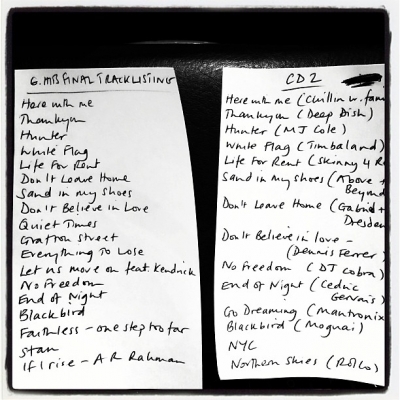 G.MB FINAL TRACKLISTING
Here with me
Thankyou
Hunter
White Flag
Life For Rent
Don't Leave Home
Sand in my Shoes
Don't Believe in Love
Quiet Times
Grafton Street
Everything To Lose
Let us move on feat. Kendrick
No Freedom
End of Night
Blackbird
Faithless - one step too far
Stan
If I rise - A R Rahman
CD 2
Here with me (Chillin w. fam
Thankyou (Deep Dish)
Hunter (MJ Cole)
White Flag (Timbaland)
Life For Rent (Skinny 4 R
Sand in my Shoes (Above +
Beyond
Don't Leave Home (Gabriel +
Dresden
Don't Believe in love -
(Dennis Ferrer)
No Freedom (DJ Cobra)
End of Night (Cedric
Gervais)
Go Dreaming (Mantronix
Blackbird (Moguai)
NYC
Northern Skies (Rollo)